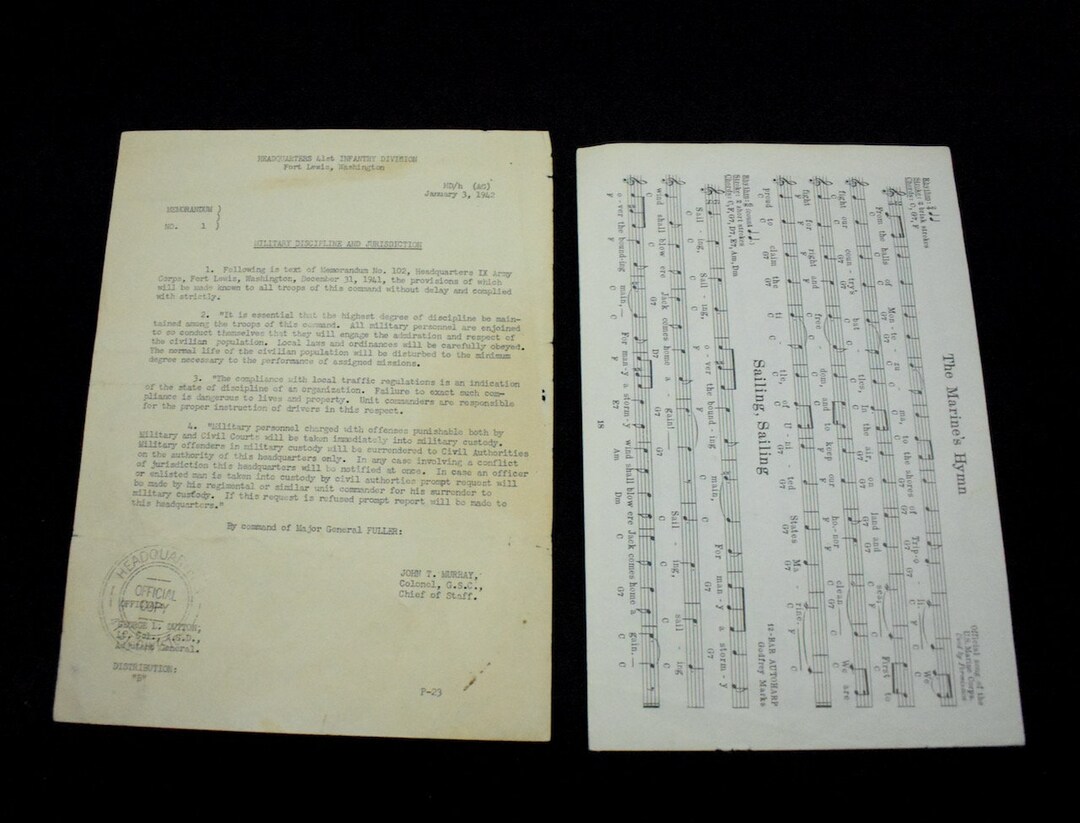 HEADQUARTERS 41st INFANTRY DIVISION
Fort Lewis, Washington
(AG)
January 3, 1942
MEMORANDUM )
NO. 1 )
MILITARY DISCIPLINE AND JURISDICTION
1. Following is text of Memorandum No. 102, Headquarters IX Army
Corps, Fort Lewis, Washington, December 31, 1941, the provisions of which
will be made known to all troops of this command without delay and complied
with strictly.
2. "It is essential that the highest degree of discipline be main-
tained among the troops of this command. All military personnel are enjoined
to so conduct themselves that they will engage the admiration and respect of
the civilian population. Local laws and ordinances will be carefully obeyed.
The normal life of the civilian population will be disturbed to the minimum
degree necessary to the performance of assigned missions.
3. "The compliance with local traffic regulations is an indication
of the state of discipline of an organization. Failure to exact such com-
pliance is dangerous to lives and property. Unit commanders are responsible
for the proper instruction of drivers in this respect.
4. "Military personnel charged with offenses punishable both by
Military and Civil Courts will be taken immediately into military custody.
Military offenders in military custody will be surrendered to Civil Authorities
on the authority of this headquarters only. In any case involving a conflict
of jurisdiction this headquarters will be notified at once. In case an officer
or enlisted man is taken into custody by civil authorties prompt request will
be made by his regimental or similar unit commander for his surrender to
military custody. If this request is refused prompt report will be made to
this headquarters."
By command of Major General FULLER:
JOHN T. MURRAY,
Colonel, G.S.C.,
Chief of Staff.
HEADQUARTERS
OFFICIAL
COPY
OFFICIAL:
GEORGE L. DUTTON,
Lt. Col., A.G.D.,
Adjutant General.
DISTRIBUTION:
"B"
P-23
The Marine's Hymn
Official song of the
U.S. Marine Corps.
Used by Permission
Rhythm:
Strokes
Chords: C, G7, F
From the halls of Mon - te - zu - ma, to the shores of Trip-o - li, We
fight our coun - try's bat - tles, In the air, on land and sea, First to
fight for right and free - dom, and to keep our ho - nor clean We are
proud to claim the ti - tle, of U - ni - ted States Ma - rine.
Sailing, Sailing
12-BAR AUTOHARP
Godfrey Marks
Rhythm:
Strokes: short strokes
Chords: C, F, G7, D7, E7, Am, Dm
Sail - ing, Sail - ing, o - ver the bound - ing main, For man - y a storm - y
wind shall blow ere Jack comes home a - gain! Sail - ing, sail - ing
o - ver the bound-ing main, For man - y a storm - y wind shall blow ere Jack comes home a - gain.
18